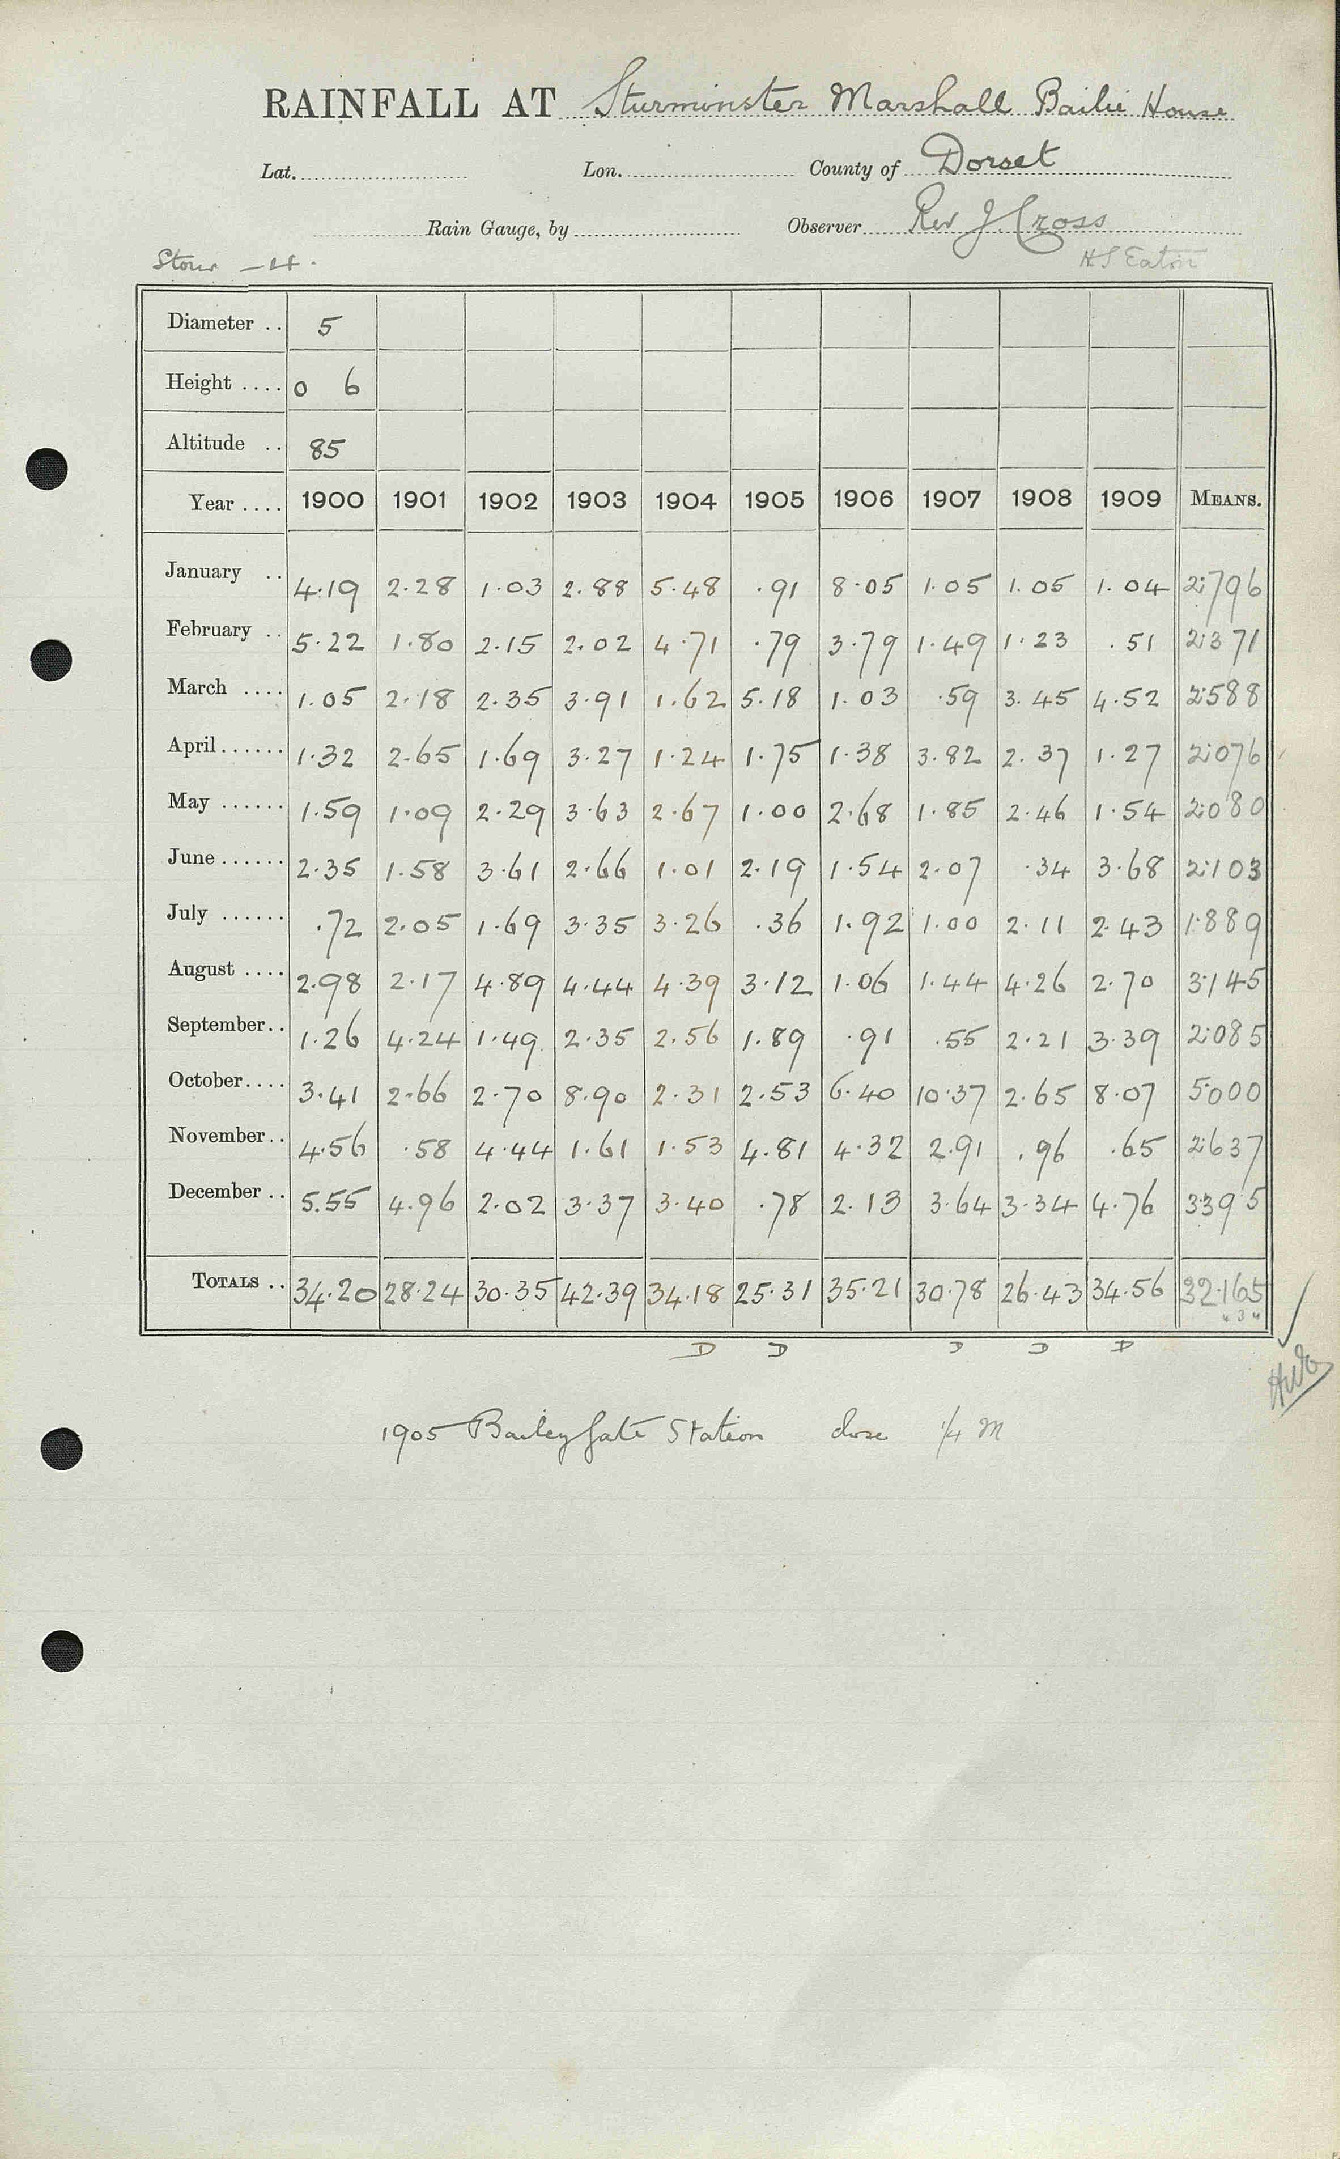 RAINFALL AT Sturminster Marshall Bailie House
Lat. Lon. County of Dorset
Rain Gauge, by Observer Rev J. Cross
Stour - 4. H S Eaton
Diameter .. 5
Height .... 0 6
Altitude .. 85
Year .... 1900 1901 1902 1903 1904 1905 1906 1907 1908 1909 MEANS.
January .. 4.19 2.28 1.03 2.88 5.48 .91 8.05 1.05 1.05 1.04 2.796
February .. 5.22 1.80 2.15 2.02 4.71 .79 3.79 1.49 1.23 .51 2.371
March .... 1.05 2.18 2.35 3.91 1.62 5.18 1.03 .59 3.45 4.52 2.588
April ...... 1.32 2.65 1.69 3.27 1.24 1.75 1.38 3.82 2.37 1.27 2.076
May ...... 1.59 1.09 2.29 3.63 2.67 1.00 2.68 1.85 2.46 1.54 2.080
June ...... 2.35 1.58 3.61 2.66 1.01 2.19 1.54 2.07 .34 3.68 2.103
July ...... .72 2.05 1.69 3.35 3.26 .36 1.92 1.00 2.11 2.43 1.889
August .... 2.98 2.17 4.89 4.44 4.39 3.12 1.06 1.44 4.26 2.70 3.145
September.. 1.26 4.24 1.49 2.35 2.56 1.89 .91 .55 2.21 3.39 2.085
October.... 3.41 2.66 2.70 8.90 2.31 2.53 6.40 10.37 2.65 8.07 5.000
November.. 4.56 .58 4.44 1.61 1.53 4.81 4.32 2.91 .96 .65 2.637
December .. 5.55 4.96 2.02 3.37 3.40 .78 2.13 3.64 3.34 4.76 3395
TOTALS .. 34.20 28.24 30.35 42.39 34.18 25.31 35.21 30.78 26.43 34.56 32.165
" 3 "
D D D D D
1905 Bailey Gate Station close 1/4 M